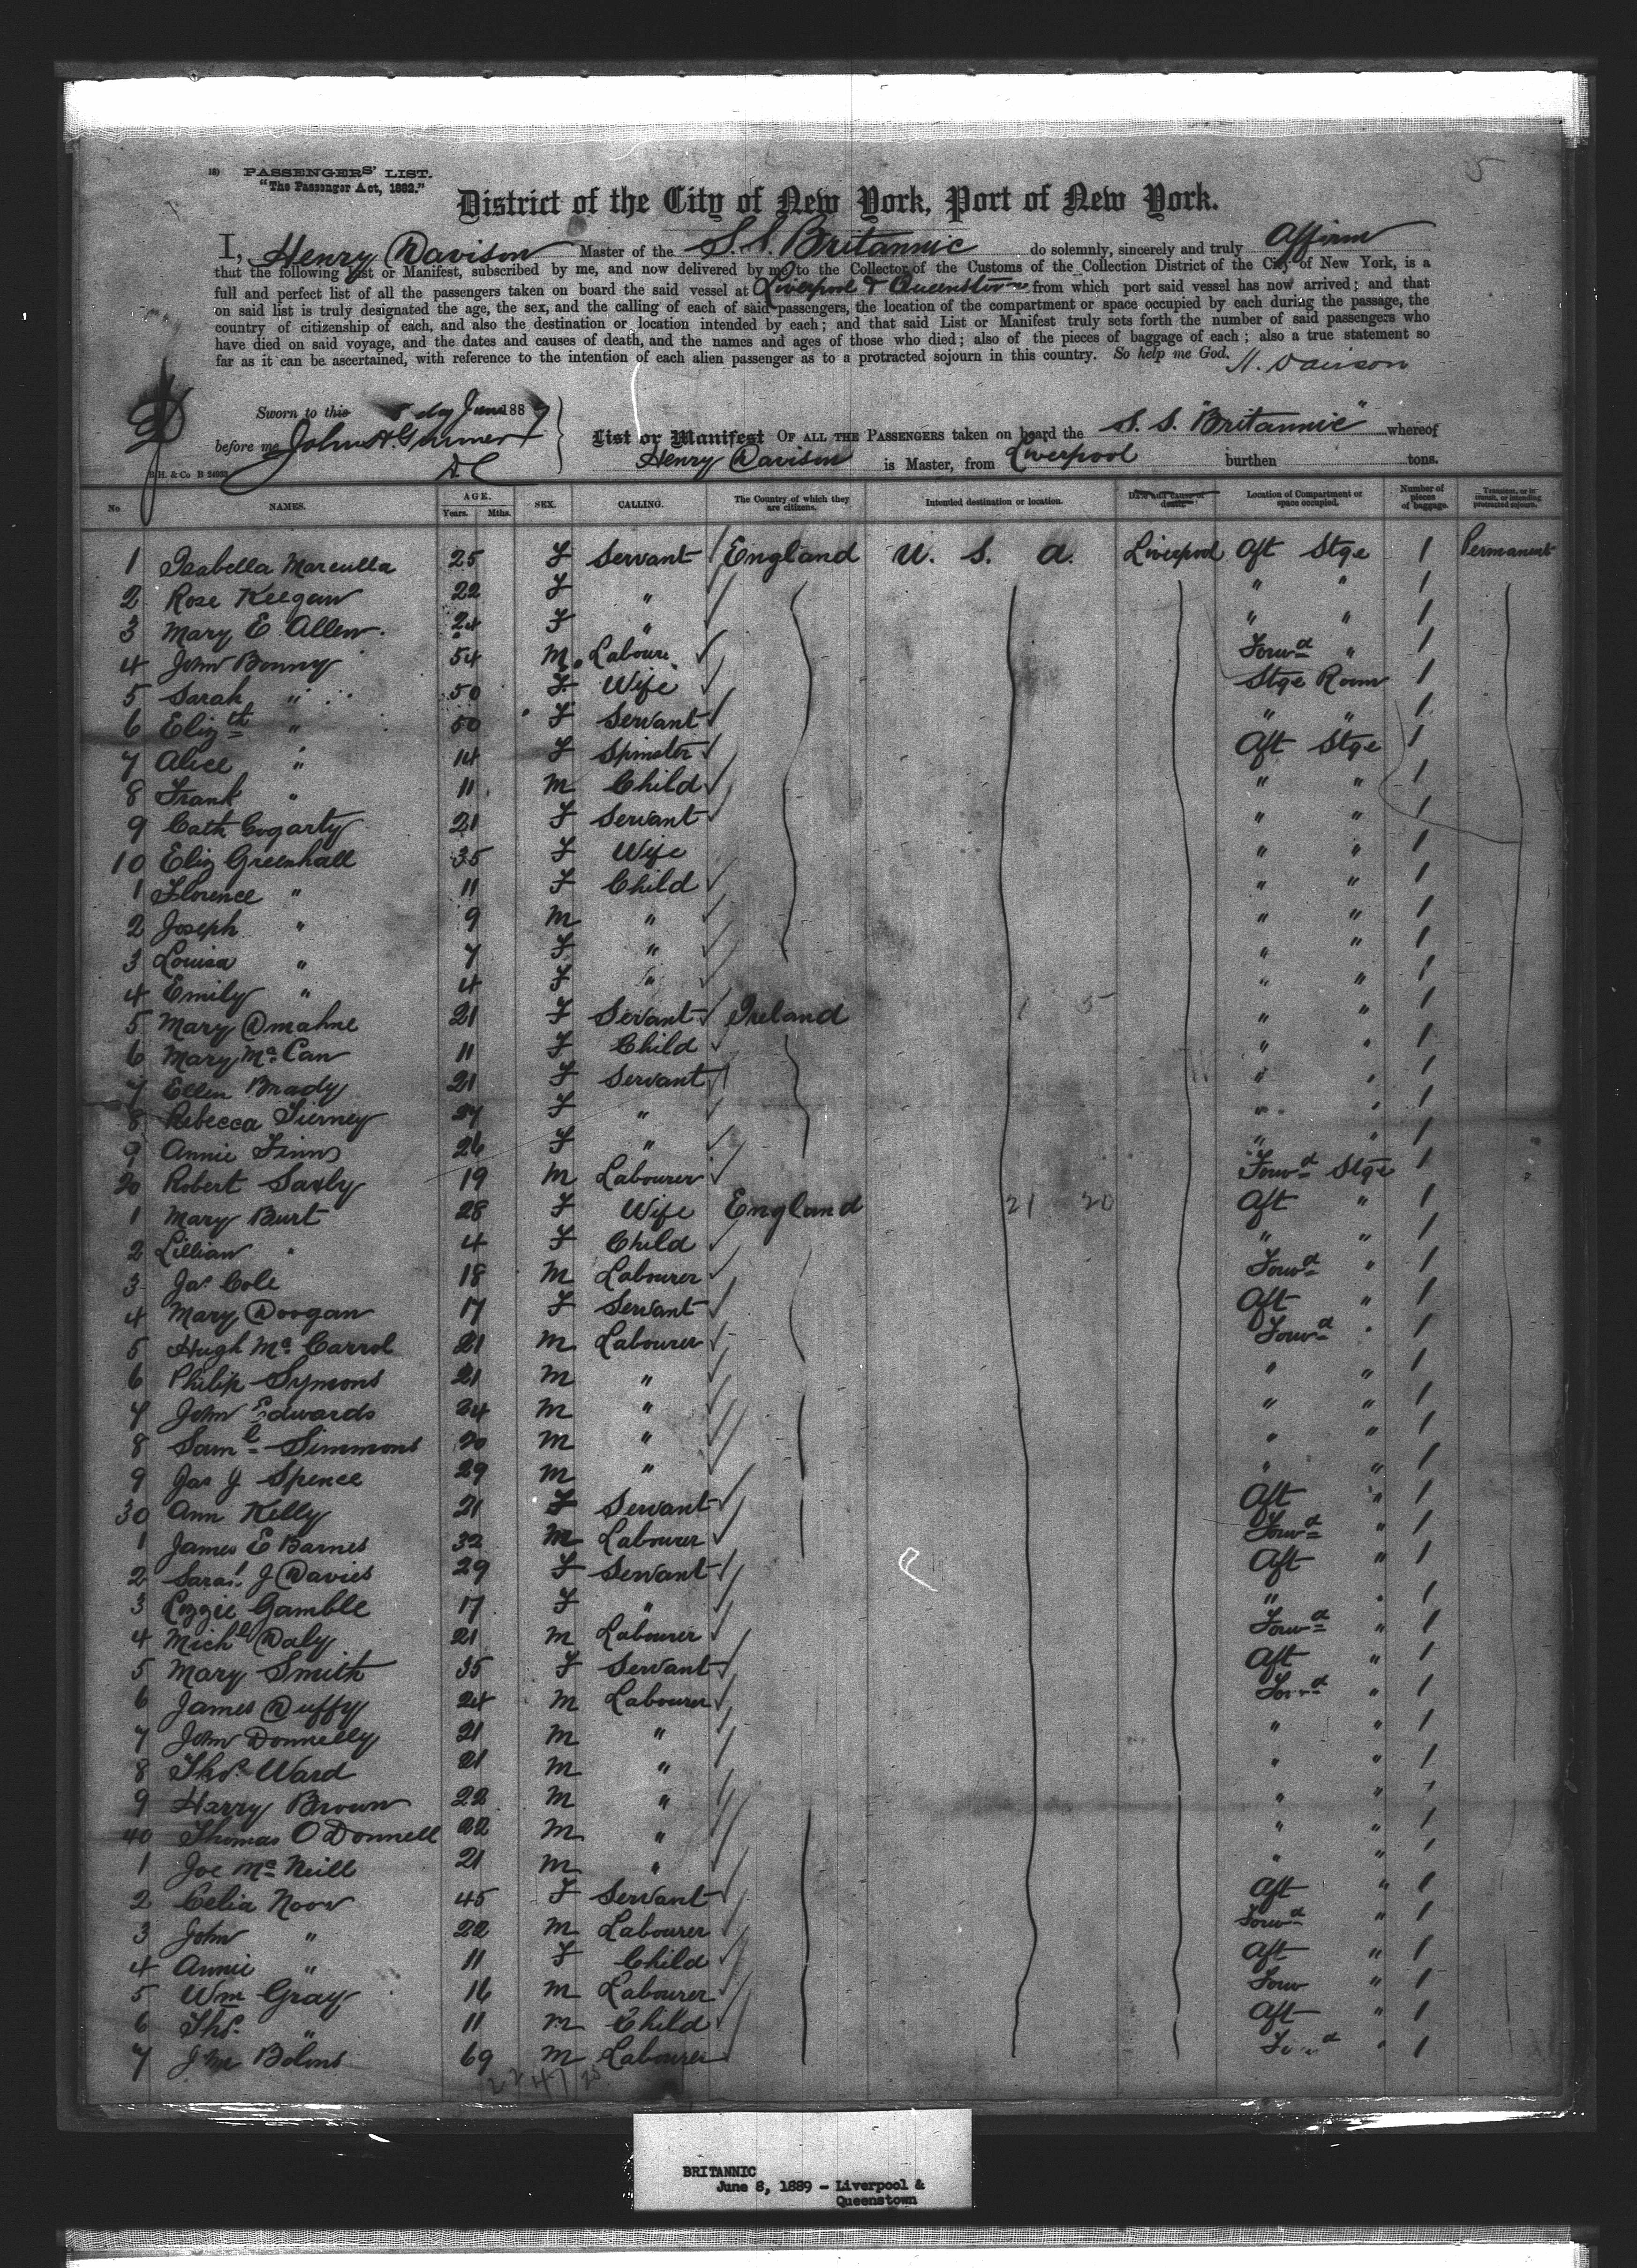 18) PASSENGERS' LIST.
"The Passenger Act, 1882."
5
District of the City of New York, Port of New York.
I, Henry Davison Master of the S.S. Britannic do solemnly, sincerely and truly Affirm
that the following List or Manifest, subscribed by me, and now delivered by me to the Collector of the Customs of the Collection District of the City of New York, is a
full and perfect list of all the passengers taken on board the said vessel at Liverpool & Queenstown from which port said vessel has now arrived; and that
on said list is truly designated the age, the sex, and the calling of each of said passengers, the location of the compartment or space occupied by each during the passage, the
country of citizenship of each, and also the destination or location intended by each; and that said List or Manifest truly sets forth the number of said passengers who
have died on said voyage, and the dates and causes of death, and the names and ages of those who died; also of the pieces of baggage of each; also a true statement so
far as it can be ascertained, with reference to the intention of each alien passenger as to a protracted sojourn in this country. So help me God.
H. Davison
Sworn to this 8 day June 1889
before me
List or Manifest OF ALL THE PASSENGERS taken on board the S. S. "Britannic" whereof
Henry Davison is Master, from Liverpool burthen tons.
No NAMES. AGE. Years. Mths. SEX. CALLING. The Country of which they are citizens. Intended destination or location. Date and cause of death. Location of Compartment or space occupied. Number of pieces of baggage. Transient, or in transit, or intending protracted sojourn.
1 Isabella Marculla 25 F Servant England U. S. A. Liverpool Aft Stge 1 Permanent
2 Rose Keegan 22 F " " " 1
3 Mary E Allen 24 F " " " 1
4 John Bonny 54 M Labourer Forwd " 1
5 Sarah " 50 F Wife Stge Room 1
6 Elizth " 50 F Servant " " 1
7 Alice " 14 F Spinster Aft Stge 1
8 Frank " 11 M Child " " 1
9 Cath Gogarty 21 F Servant " " 1
10 Eliz Greenhall 35 F Wife " " 1
1 Florence " 11 F Child " " 1
2 Joseph " 9 M " " " 1
3 Louisa " 7 F " " " 1
4 Emily " 4 F " " " 1
5 Mary Dmahne 21 F Servant Ireland " " 1
6 Mary McCan 11 F Child " " 1
7 Ellen Brady 21 F Servant " " 1
8 Rebecca Tierney 27 F " " " 1
9 Annie Finns 26 F " " " 1
20 Robert Saxly 19 M Labourer Forwd Stge 1
1 Mary Burt 28 F Wife England 21 20 Aft " 1
2 Lillian " 4 F Child " " 1
3 Jas Cole 18 M Labourer Forwd " 1
4 Mary Doogan 17 F Servant Aft " 1
5 Hugh McCarrol 21 M Labourer Forwd " 1
6 Philip Symons 21 M " " " 1
7 John Edwards 24 M " " " 1
8 Saml Simmons 20 M " " " 1
9 Jas J Spence 29 M " " " 1
30 Ann Kelly 21 F Servant Aft " 1
1 James E Barnes 32 M Labourer Forwd " 1
2 Sarah J Davies 29 F Servant Aft " 1
3 Lizzie Gamble 17 F " " " 1
4 Michl Daly 21 M Labourer Forwd " 1
5 Mary Smith 35 F Servant Aft " 1
6 James Duffy 24 M Labourer Forwd " 1
7 John Donnelly 21 M " " " 1
8 Thos Ward 21 M " " " 1
9 Harry Brown 22 M " " " 1
40 Thomas O Donnell 22 M " " " 1
1 Joe McNeill 21 M " " " 1
2 Celia Noon 45 F Servant Aft " 1
3 John " 22 M Labourer Forwd " 1
4 Annie " 11 F Child Aft " 1
5 Wm Gray 16 M Labourer Forw " 1
6 Thos " 11 M Child Aft " 1
7 Bolons 69 M Labourer Forwd " 1
BRITANNIC
June 8, 1889 - Liverpool &
Queenstown